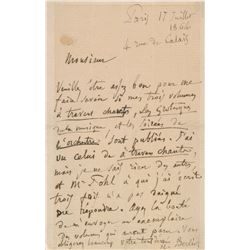 Paris 17 Juillet
1864
4 rue de Calais
Monsieur
Veuillez être assez bon pour me
faire savoir si mes trois volumes
à travers chants, les Grotesques
de la musique et les Soirées de
l'orchestre sont publiés. J'ai
vu celui de à travers chants
mais je ne sais rien des autres,
et M. Pohl à qui j'ai écrit
trois fois n'a pas daigné
me répondre. Ayez la bonté
de m'envoyer un exemplaire
du volume qui aurait paru. Vous
obligerez beaucoup votre tout dévoué